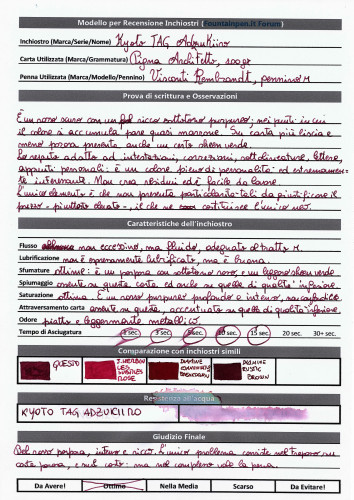 Modello per Recensione Inchiostri (Fountainpen.it Forum)
Inchiostro (Marca/Serie/Nome) Kyoto TAG Adzukiiro
Carta Utilizzata (Marca/Grammatura) Pigna Architetto, 100gr
Penna Utilizzata (Marca/Modello/Pennino) Visconti Rembrandt, pennino M
Prova di scrittura e Osservazioni
È un rosso scuro con un bel ricco sottotono purpureo; nei punti in cui
il colore si accumula pare quasi marrone. Su carta più liscia e
meno porosa presenta anche un certo sheen verde.
Lo reputo adatto ad intestazioni, correzioni, sottolineature, lettere,
appunti personali: è un colore pieno di personalità ed estremamen-
te interessante. Non crea residui ed è facile da lavare.
L'unico elemento è che non presenta particolarità tali da giustificare il
prezzo - piuttosto elevato -, il che ne costituisce l'unico neo.
Caratteristiche dell'inchiostro
Flusso non eccessivo, ma fluido, adeguato al tratto M.
Lubrificazione non è estremamente lubrificato, ma è buona.
Sfumature ottime: è un porpora con sottotono rosso, e un leggero sheen verde
Spiumaggio assente su questa carta, ed anche su quelle di qualità inferiore
Saturazione ottima. È un rosso purpureo profondo e intenso,
Attraversamento carta assente su questa, accentuato su quelle di qualità inferiore.
Odore piatto e leggermente metallico
Tempo di Asciugatura 1 sec. 5 sec. 10 sec. 15 sec. 20 sec. 30+ sec.
Comparazione con inchiostri simili
QUESTO J. HERBIN LES SUBTILES ROSE DIAMINE DIAMINE RUSTIC BROWN
Resistenza all'acqua
KYOTO TAG ADZUKIIRO
Giudizio Finale
Bel rosso porpora, intenso e ricco. L'unico problema consiste nel trapasso su
carta porosa, e nel costo: ma nel complesso vale la pena.
Da Avere! Ottimo Nella Media Scarso Da Evitare!